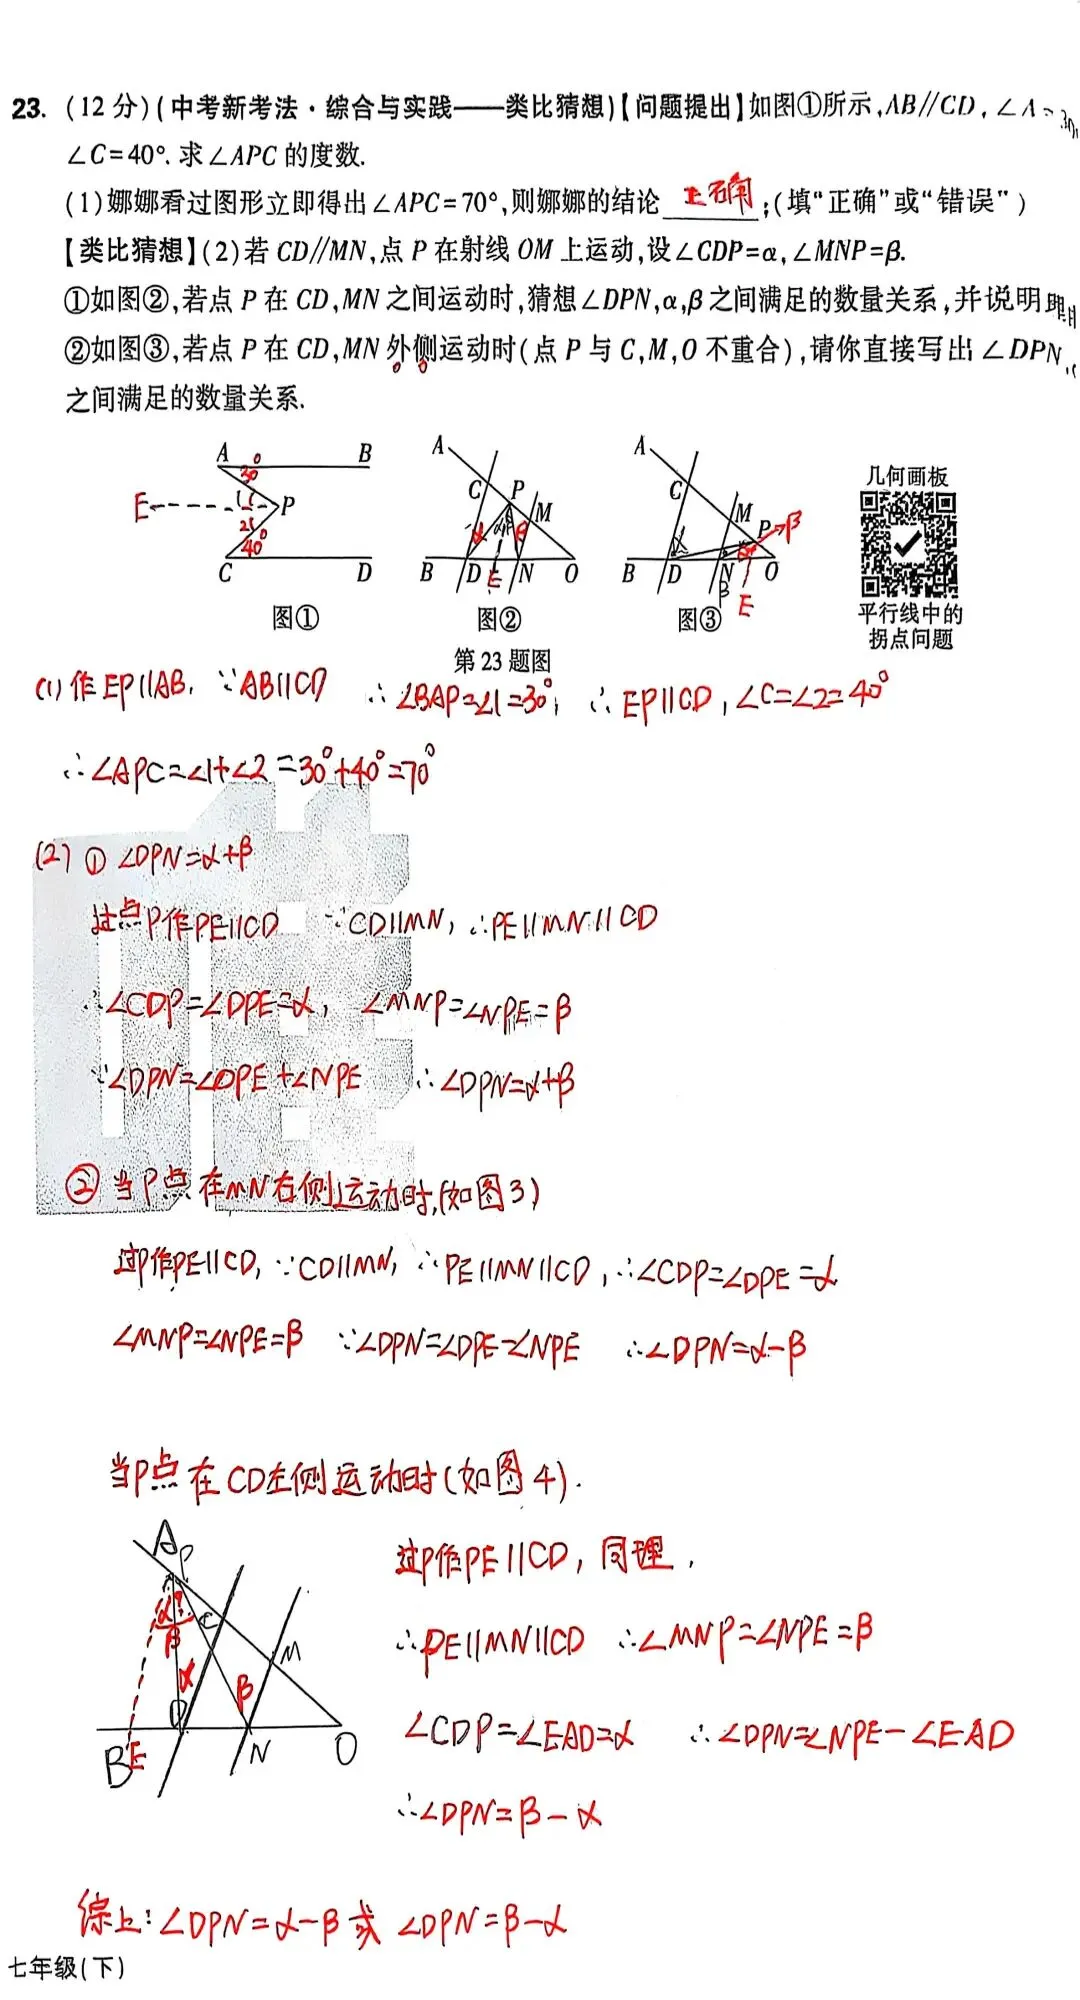 23. (12分)(中考新考法·综合与实践——类比猜想)【问题提出】如图①所示,AB∥CD,∠A=30
∠C=40°.求∠APC的度数.
(1)娜娜看过图形立即得出∠APC=70°,则娜娜的结论 正确 ;(填“正确”或“错误”)
【类比猜想】(2)若CD∥MN,点P在射线OM上运动,设∠CDP=α,∠MNP=β.
①如图②,若点P在CD,MN之间运动时,猜想∠DPN,α,β之间满足的数量关系,并说明理由
②如图③,若点P在CD,MN外侧运动时(点P与C,M,O不重合),请你直接写出∠DPN,
之间满足的数量关系.
A B E P C D 30° 1 2 40°
图①
A C P M B D E N O α β
图②
A C M P β B D N O E
图③
几何画板
平行线中的
拐点问题
第23题图
(1)作EP∥AB, ∵AB∥CD ∴∠BAP=∠1=30°, ∴EP∥CD,∠C=∠2=40°
∴∠APC=∠1+∠2=30°+40°=70°
(2)①∠DPN=α+β
过点P作PE∥CD ∵CD∥MN,∴PE∥MN∥CD
∴∠CDP=∠DPE=α, ∠MNP=∠NPE=β
∵∠DPN=∠DPE+∠NPE ∴∠DPN=α+β
②当P点在MN右侧运动时,(如图3)
过P作PE∥CD,∵CD∥MN,∴PE∥MN∥CD,∴∠CDP=∠DPE=α
∠MNP=∠NPE=β ∵∠DPN=∠DPE-∠NPE ∴∠DPN=α-β
当P点在CD左侧运动时(如图4).
A P C M α β D B E N O
过P作PE∥CD,同理,
∴PE∥MN∥CD ∴∠MNP=∠NPE=β
∠CDP=∠EAD=α ∴∠DPN=∠NPE-∠EAD
∴∠DPN=β-α
综上:∠DPN=α-β或∠DPN=β-α
七年级(下)